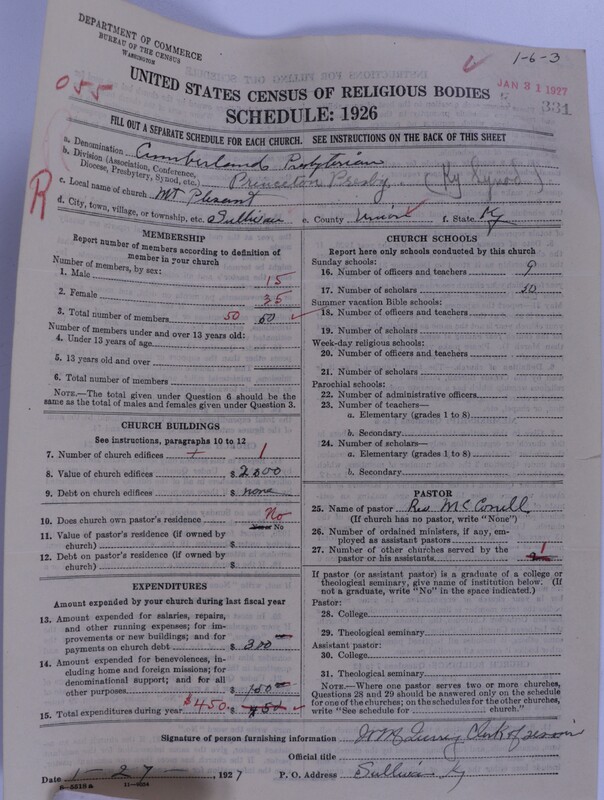 DEPARTMENT OF COMMERCE
BUREAU OF THE CENSUS
WASHINGTON
1-6-3
JAN 31 1927
331
055
UNITED STATES CENSUS OF RELIGIOUS BODIES
SCHEDULE: 1926
FILL OUT A SEPARATE SCHEDULE FOR EACH CHURCH. SEE INSTRUCTIONS ON THE BACK OF THIS SHEET
R
a. Denomination Cumberland Presbyterian
b. Division (Association, Conference, Diocese, Presbytery, Synod, etc.) Princeton Presby. (Ky Synod)
c. Local name of church Mt Plesant
d. City, town, village, or township, etc. Sullivan e. County Union f. State Ky
MEMBERSHIP
Report number of members according to definition of
member in your church
Number of members, by sex:
1. Male 15
2. Female 35
3. Total number of members 50 50
Number of members under and over 13 years old:
4. Under 13 years of age
5. 13 years old and over
6. Total number of members
NOTE.—The total given under Question 6 should be
same as the total of males and females given under Question 3.
CHURCH BUILDINGS
See instructions, paragraphs 10 to 12
7. Number of church edifices 1
8. Value of church edifices $ 2000
9. Debt on church edifices $ none
10. Does church own pastor's residence No
Yes or No
11. Value of pastor's residence (if owned by
church) $
12. Debt on pastor's residence (if owned by
church) $
EXPENDITURES
Amount expended by your church during last fiscal year
13. Amount expended for salaries, repairs,
and other running expenses; for im-
provements or new buildings; and for
payments on church debt $ 300
14. Amount expended for benevolences, in-
cluding home and foreign missions; for
denominational support; and for all
other purposes $ 150
15. Total expenditures during year $450. $ 450
CHURCH SCHOOLS
Report here only schools conducted by this church
Sunday schools:
16. Number of officers and teachers 9
17. Number of scholars 50
Summer vacation Bible schools:
18. Number of officers and teachers
19. Number of scholars
Week-day religious schools:
20. Number of officers and teachers
21. Number of scholars
Parochial schools:
22. Number of administrative officers
23. Number of teachers—
a. Elementary (grades 1 to 8)
b. Secondary
24. Number of scholars—
a. Elementary (grades 1 to 8)
b. Secondary
PASTOR
25. Name of pastor Rev McConell
(If church has no pastor, write "None")
26. Number of ordained ministers, if any, em-
ployed as assistant pastors
27. Number of other churches served by the
pastor or his assistants 1
If pastor (or assistant pastor) is a graduate of a college or
theological seminary, give name of institution below. (If
not a graduate, write "No" in the space indicated.)
Pastor:
28. College
29. Theological seminary
Assistant pastor:
30. College
31. Theological seminary
NOTE.—Where one pastor serves two or more churches,
Questions 28 and 29 should be answered only on the schedule
for one of the churches; on the schedules for the other churches,
write "See schedule for church."
Signature of person furnishing information Clerk of
Official title
Date 1-27-, 1927 P. O. Address Sullivan Ky